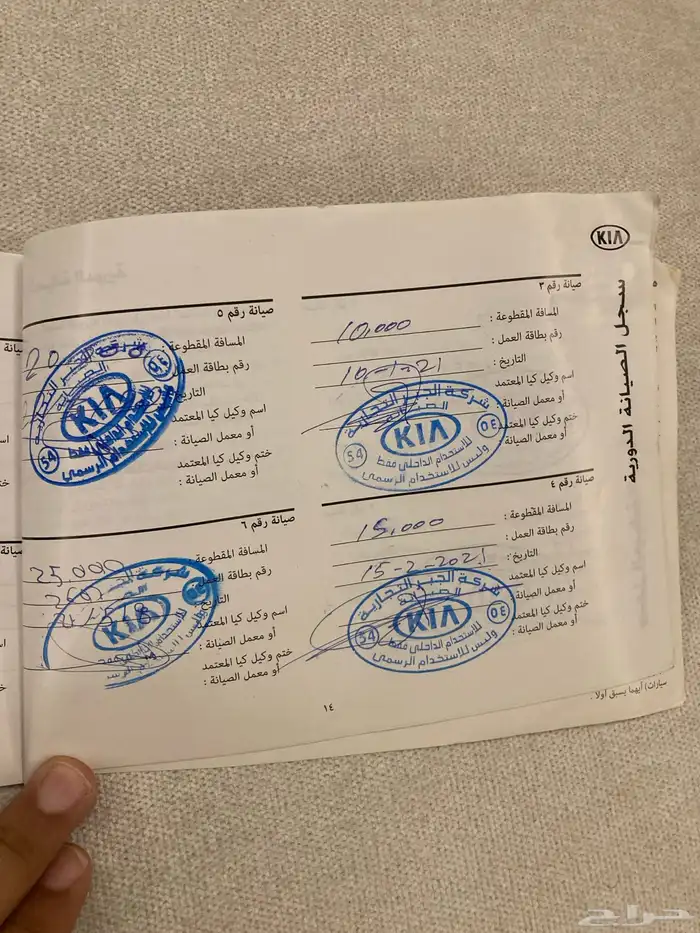 KIA
سجل الصيانة الدورية
صيانة رقم ٣
المسافة المقطوعة : 10,000
رقم بطاقة العمل :
التاريخ : 10-1-21
اسم وكيل كيا المعتمد
أو معمل الصيانة :
ختم وكيل كيا المعتمد
أو معمل الصيانة :
شركة الجبر التجارية
الصيانة
KIA
54
٥٤
للاستخدام الداخلي فقط
وليس للاستخدام الرسمي
صيانة رقم ٤
المسافة المقطوعة : 15,000
رقم بطاقة العمل :
التاريخ : 15-2-2021
اسم وكيل كيا المعتمد
أو معمل الصيانة :
ختم وكيل كيا المعتمد
أو معمل الصيانة :
شركة الجبر التجارية
الصيانة
KIA
54
٥٤
للاستخدام الداخلي فقط
وليس للاستخدام الرسمي
صيانة رقم ٥
المسافة المقطوعة :
رقم بطاقة العمل :
التاريخ :
اسم وكيل كيا المعتمد
أو معمل الصيانة :
ختم وكيل كيا المعتمد
أو معمل الصيانة :
شركة الجبر التجارية
الصيانة
KIA
54
٥٤
للاستخدام الداخلي فقط
وليس للاستخدام الرسمي
صيانة رقم ٦
المسافة المقطوعة : 25,000
رقم بطاقة العمل :
التاريخ :
اسم وكيل كيا المعتمد
أو معمل الصيانة :
ختم وكيل كيا المعتمد
أو معمل الصيانة :
شركة الجبر
KIA
١٤
سيارات) أيهما يسبق أولا .
حراج